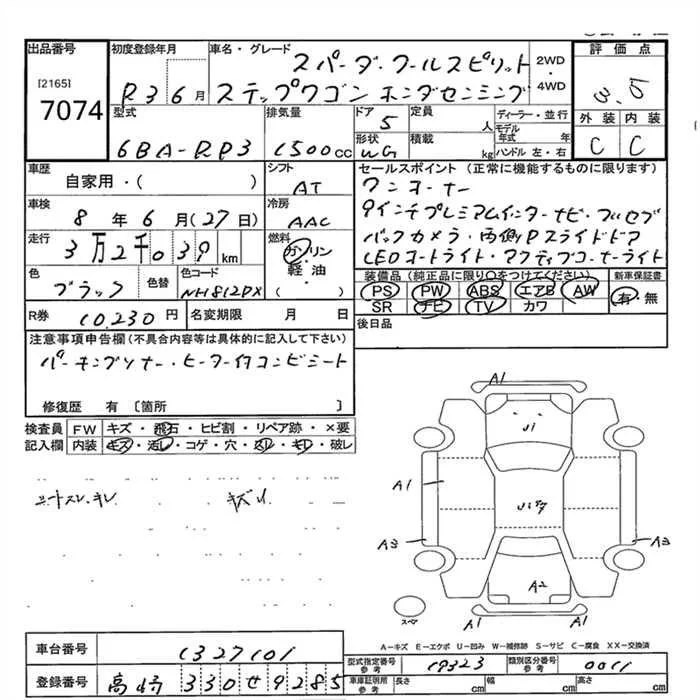 出品番号 初度登録年月 車名・グレード スパーダ・クールスピリット 2WD・4WD 評価点
[2165] 7074 R3 6月 ステップワゴン ホンダセンシング 3.5
型式 排気量 ドア 定員 ディーラー・並行 外装 内装
6BA-RP3 1500cc 5 人 モデル年式 年 C C
形状 積載 ハンドル 左・右
WG kg
車歴 シフト セールスポイント (正常に機能するものに限ります)
自家用・( ) AT ワンオーナー
車検 冷房 9インチプレミアムインターナビ・フルセグ
8年6月(27日) AAC バックカメラ・両側Pスライドドア
走行 燃料 LEDヘッドライト・アクティブコーナーライト
3万2千039km ガソリン・軽油・( )
色 色替 色コード 装備品(純正品に限り○をつけてください) 新車保証書
ブラック NH812PX PS PW ABS エアB AW 有・無
SR ナビ TV カワ
R券 10,230円 名変期限 月 日 後日品
注意事項申告欄(不具合内容等は具体的に記入して下さい)
パーキングソナー・ヒーター付コンビシート
修復歴 有 〔箇所 〕
検査員 FW キズ・飛石・ヒビ割・リペア跡・×要
記入欄 内装 キズ・汚レ・コゲ・穴・スレ・キレ・破レ
シートスレ・キレ キズ小
A1
A1
A3 A3
A2
A1 A1
スペア
A-キズ E-エクボ U-凹み W-補修跡 S-サビ C-腐食 XX-交換済
車台番号 1327101
型式指定番号 参考 19323 類別区分番号 参考 0011
登録番号 高崎 330 せ 9285
車庫証明所 参考 長さ cm 幅 cm 高さ cm